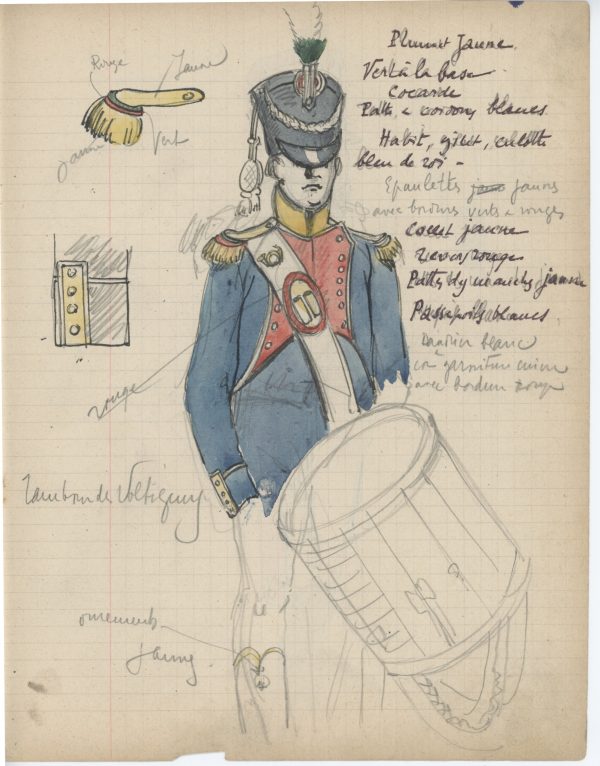 Plumet Jaune
Vert à la base
Cocarde
Patte & cordons blancs
Habit, gilet, culotte
bleu de roi -
Epaulettes jaunes
avec bordures verts & rouges
Collet jaune
revers rouges
Pattes manches jaunes
Passepoils blancs
blanc
garniture cuivre
avec bordure rouge
Rouge
Jaune
jaune
Vert
rouge
Tambour des Voltigeurs
ornements
jaunes